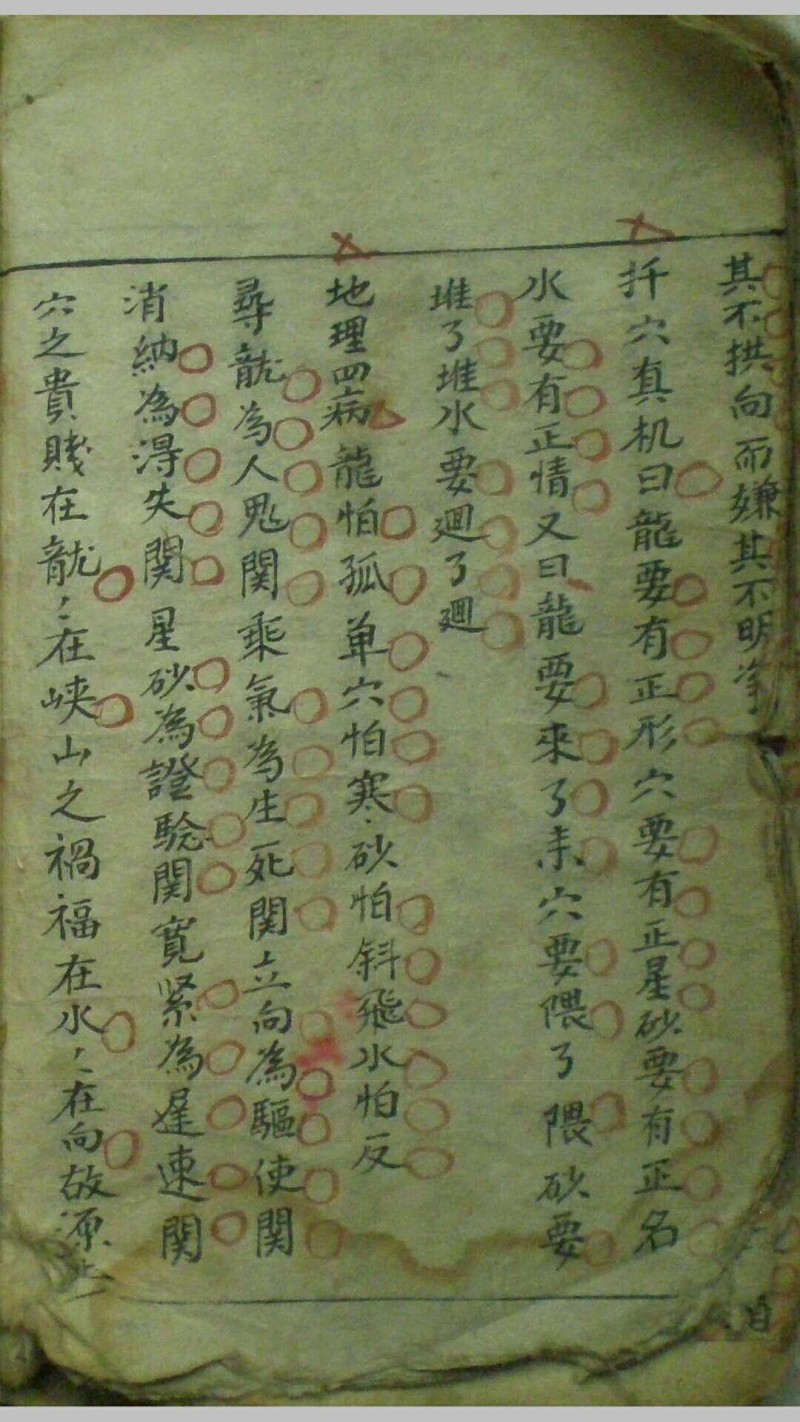 其不拱向而嫌其不明
扦穴真机曰龍要有正形穴要有正星砂要有正名
水要有正情又曰龍要來了来穴要隈了隈砂要
堆了堆水要廻了廻
地理四病龍怕孤单穴怕寒砂怕斜飛水怕反
尋龍為人鬼関乘氣為生死関立向為驅使関
消納為淂失関星砂為證騐関寛紧為遅速関
穴之貴賤在龍〻在峡山之禍福在水〻在向故源